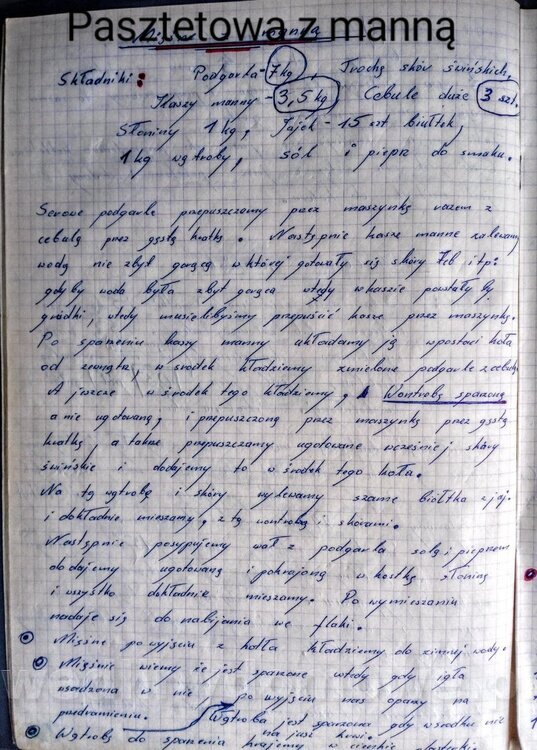 Pasztetowa z manną
Składniki: Podgarla - 7 kg, Trochę skór świńskich,
Kaszy manny - 3,5 kg Cebule duże 3 szt.
Słoniny 1 kg, Jajek - 15 szt białtek,
1 kg wątroby, sól i pieprz do smaku.
Serowe podgarle przepuszczamy przez maszynkę razem z
cebulą przez gęstą kratkę. Następnie kasze manne zalewamy
wodą nie zbyt gorącą w której gotowały się skóry łeb itp:
gdyby woda była zbyt gorąca wtedy w kaszie powstały by
grudki, wtedy musielibyśmy przepuścić kasze przez maszynkę.
Po sparzeniu kaszy manny układamy ją w postaci koła
od zewnątrz w środek kładziemy zmielone podgarle z cebulą
A jeszcze w środek tego kładziemy, Wontrobę sparzoną
a nie ugotowaną, i przepuszczoną przez maszynkę przez gęstą
kratkę, a także przepuszczamy ugotowane wcześniej skóry
świńskie i dodajemy to w środek tego koła.
Na tą wątrobę i skóry wylewamy szame białtka z jaj.
i dokładnie mieszamy, z tą wontrobą i skórami.
Następnie posypujemy wał z podgarla solą i pieprzem
dodajemy ugotowaną i pokrajoną w kostkę słoninę
i wszystko dokładnie mieszamy. Po wymieszaniu
nadaje się do nabijania we flaki.
Mięsne po wyjściu z kotła kładziemy do zimnej wody.
Mięśnie wiemy że jest sparzone wtedy gdy igła
wsadzona w nie po wyjściu nas oparzy na
przedramieniu. Wątroba jest sparzona gdy w środku nie
ma już krwi.
Wątrobę do sparzenia krajemy w cienkie